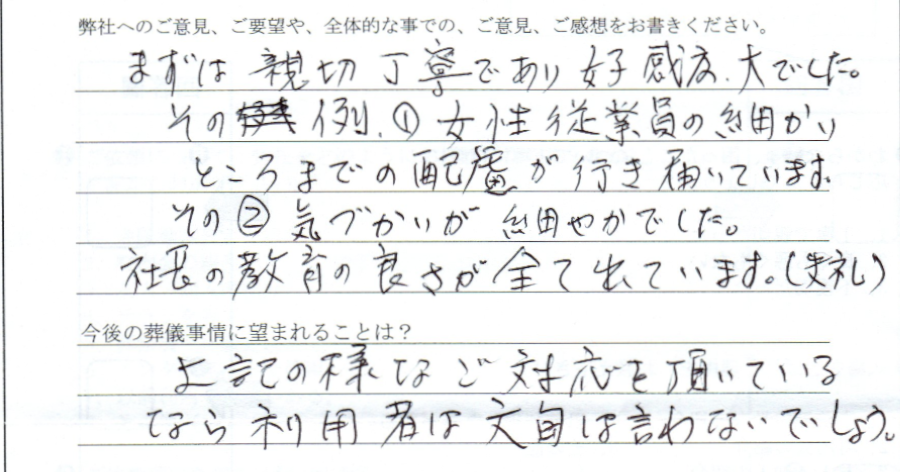 弊社へのご意見、ご要望や、全体的な事での、ご意見、ご感想をお書きください。
まずは 親切 丁寧であり 好感度、大でした。
その 例、① 女性従業員の細かい
ところまでの配慮が行き届いています。
その② 気づかいが 細やかでした。
社長の教育の良さが全て出ています。(失礼)
今後の葬儀事情に望まれることは？
上記の様なご対応を頂いている
なら利用者は文句は言わないでしょう。